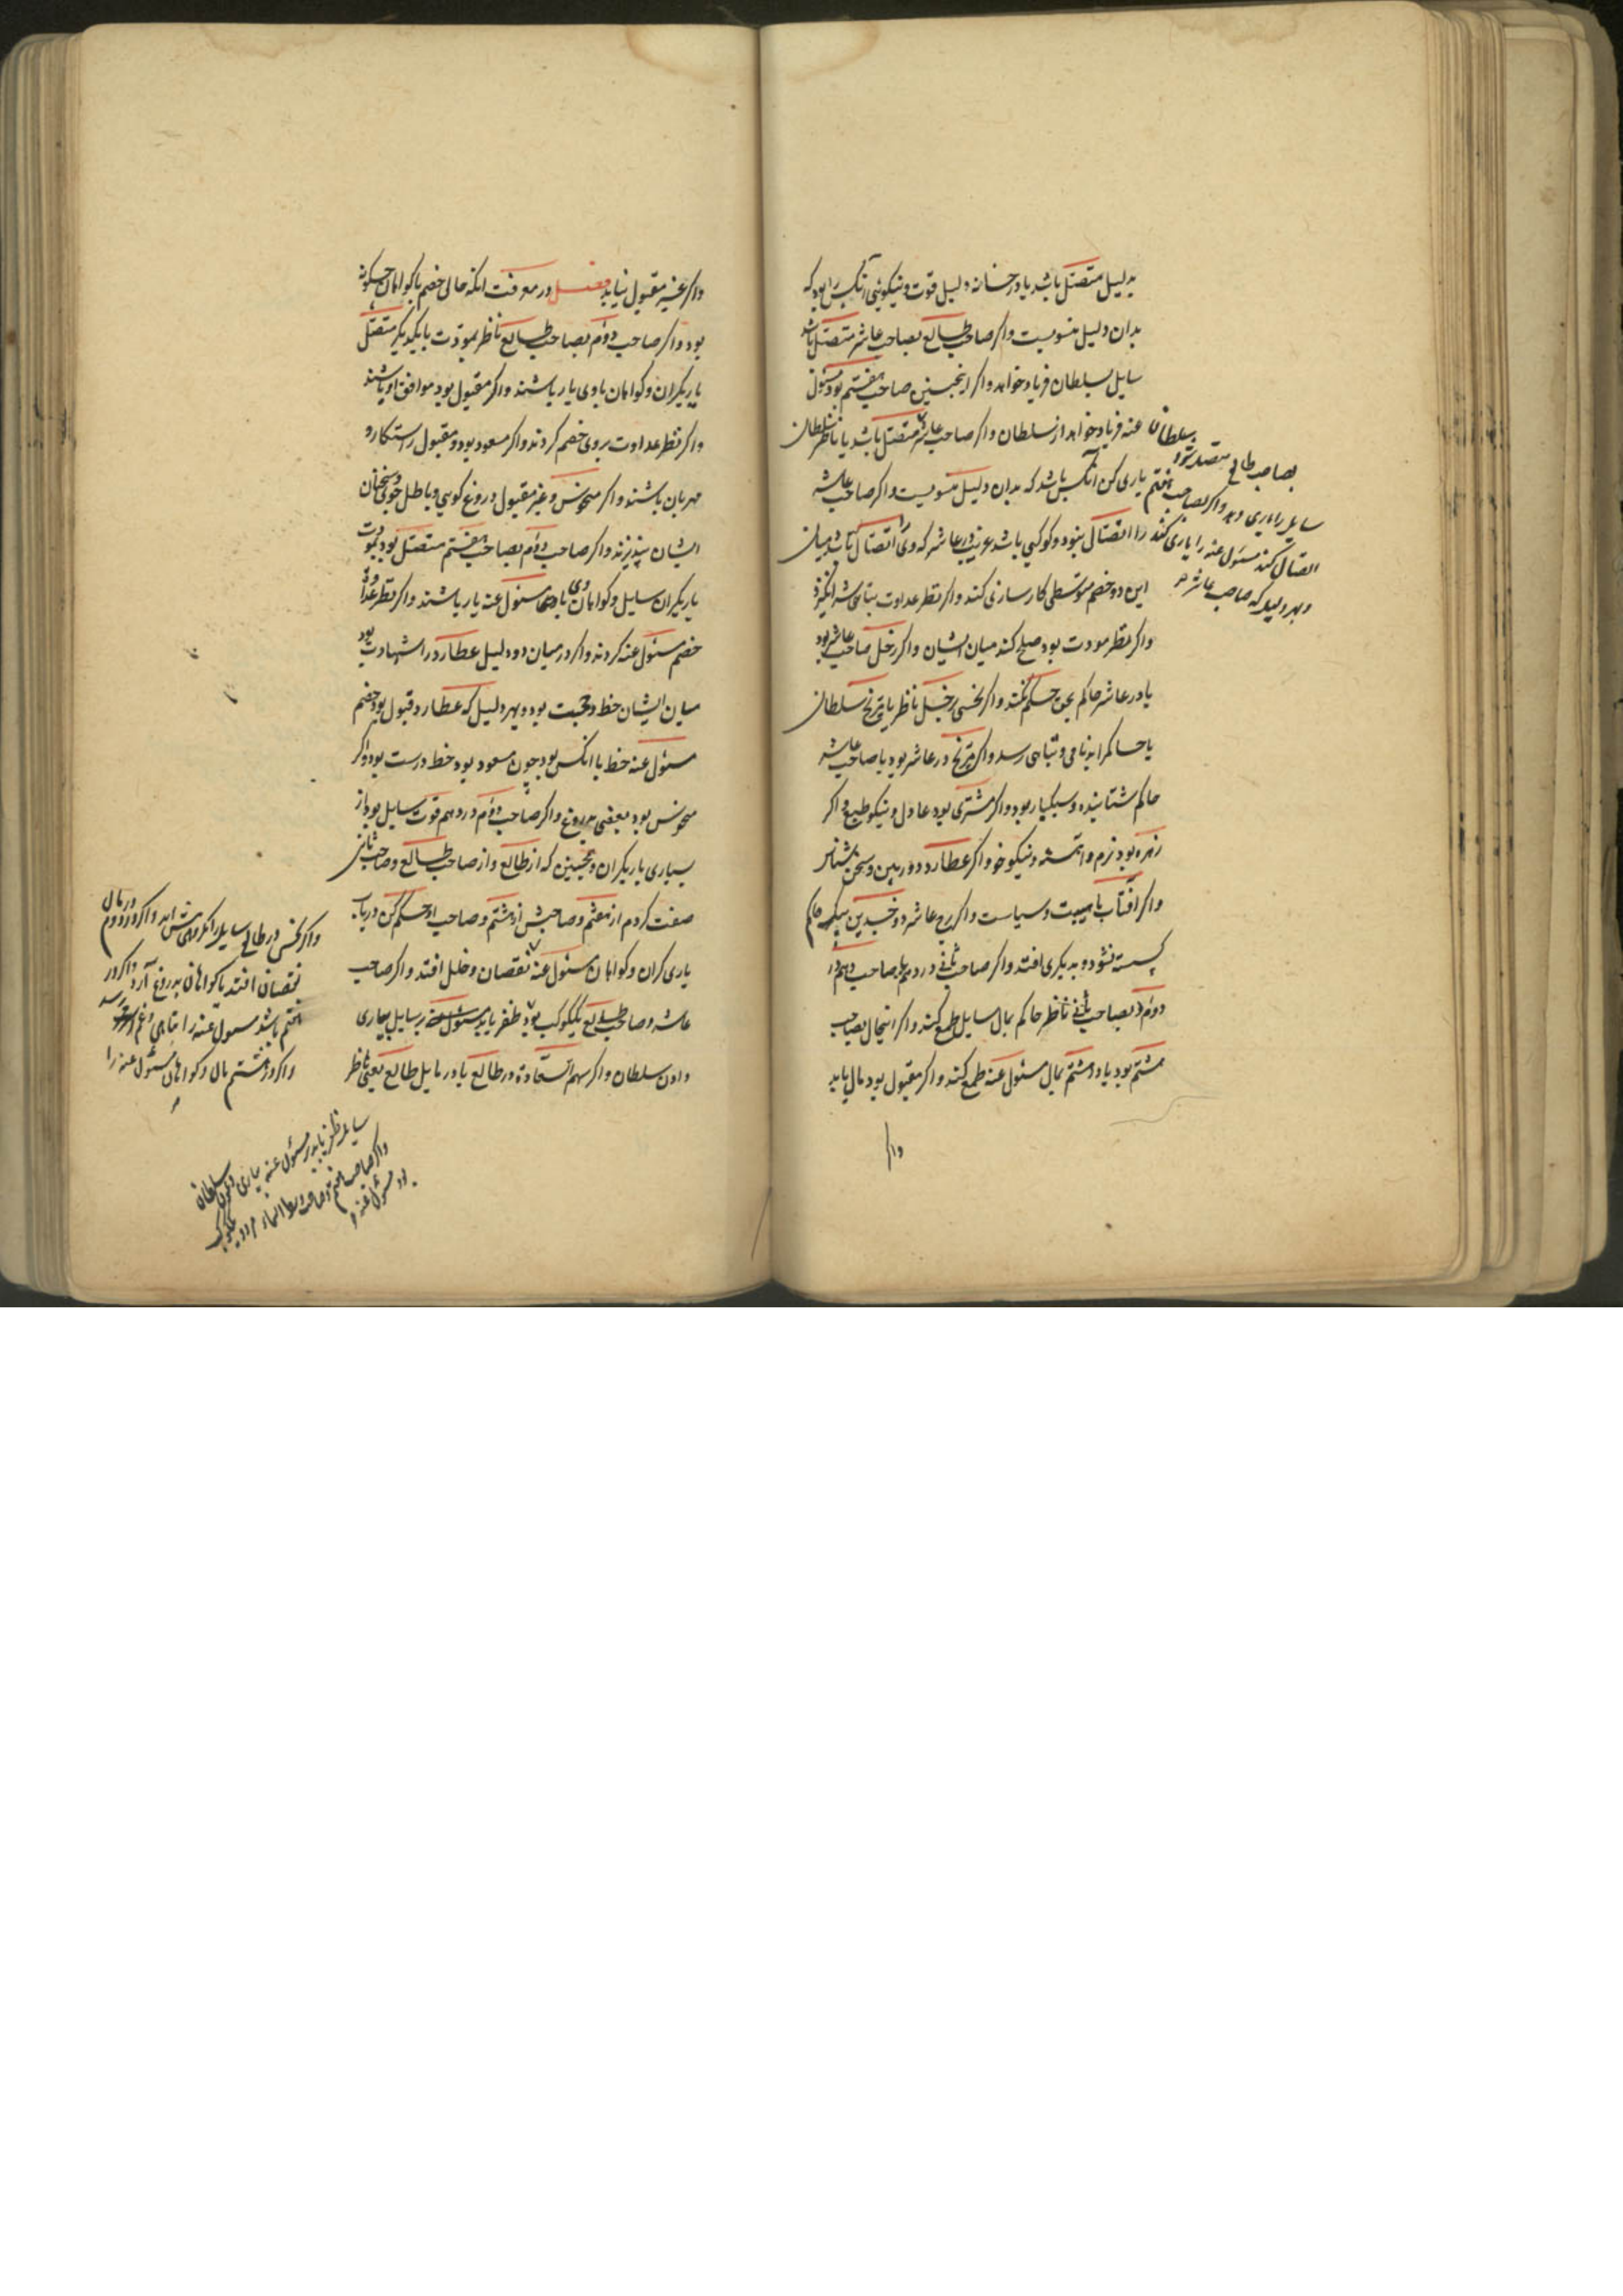 بدلیل متصل باشد یا در خانه دلیل قوت و نیکویی آنکس را بود که
بدان دلیل منسوبست و اکر صاحب طالع بصاحب عاشر متصل باشد
سایل بسلطان فریاد خواهد و اکر اینجنین صاحب هفتم بود مسئول
عنه فریاد خواهد از سلطان و اکر صاحب عاشر متصل باشد یا ناظر سلطان
یاری کن آنکس باشد که بدان دلیل منسوبست و اکر صاحب عاشر
را اتصال نبود و کوکبی باشد غریب در عاشر که وی را اتصال باشد میان
این دو خصم متوسطی کارسازی کند و اکر نظر عداوت بتباهی شر انکیزد
و اکر نظر مودت بود صلح کند میان ایشان و اکر زحل صاحب عاشر بود
یا در عاشر حاکم بحق حکم نکند و اکر نحسی بزحل ناظر یا مریخ سلطان
یا حاکم را بدنامی و تباهی رسد و اکر مریخ در عاشر بود یا صاحب عاشر
حاکم شتابنده و سبکبار بود و اکر مشتری بود عادل و نیکو طبع و اکر
زهره بود نرم و آهسته و نیکو خو و اکر عطارد دوربین و سخن شناس
و اکر آفتاب با هیبت و سیاست و اکر برج عاشر ذو جسدین بیک حاکم
بسته نشود و به یکری افتد و اکر صاحب ثانی در دهم یا صاحب دهم در
دوم و بصاحب ثانی ناظر حاکم بمال سایل طمع کند و اکر اینحال بصاحب
هشتم بود یا در هشتم بمال مسئول عنه طمع کند و اکر مقبول بود مال یابد
واکر
بسلطان
بصاحب طالع متصل شود
سایل را یاری دهد و اکر بصاحب هفتم
اتصال کند مسئول عنه را یاری کند
و بهر دلیل که صاحب عاشر
و اکر غیر مقبول نیابد فصل در معرفت آنکه حال خصم با کواهان چکونه
بود و اکر صاحب دوم بصاحب طالع ناظر بمودت یا بیکدیکر متصل
یاریکران و کواهان با وی یار باشند و اکر مقبول بود موافق او باشند
و اکر نظر عداوت بر وی خصم کردند و اکر مسعود بود و مقبول راستکار و
مهربان باشند و اکر منحوس و غیر مقبول دروغ کوی و باطل جوی و سخنان
ایشان نپذیرند و اکر صاحب دوم بصاحب هفتم متصل بود بمودت
یاریکران سایل و کواهان وی با مسئول عنه یار باشند و اکر نظر عداوت
خصم مسئول عنه کردند و اکر در میان دو دلیل عطارد را شهادت بود
میان ایشان خط و حجت بود و بهر دلیل که عطارد قبول بود خصم
مسئول عنه خط با آنکس بود چون مسعود بود خط درست بود و اکر
منحوس بود بعضی دروغ و اکر صاحب دوم در دهم قوت سایل بود از
بسیاری یاریکران و همچنین که از طالع و از صاحب طالع و صاحب ثانی
صفت کردم از هفتم و صاحبش از هشتم و صاحب او حکم کن در باب
یاری کران و کواهان مسئول عنه نقصان و خلل افتد و اکر صاحب
عاشر و صاحب طالع یک کوکب بود ظفر یابد مسئول عنه بر سایل بیاری
دادن سلطان و اکر سهم السعادة در طالع یا در مایل طالع یعنی ناظر
و اکر نحس در طالع سایل را
نقصان افتد یا کواهان بدروغ آرد و اکر در
هفتم باشد مسئول عنه را تباهی و غم رسد
و اکر در هشتم مال و کواهان مسئول عنه را
سایل ظفر یابد بر مسئول عنه بیاری سلطان